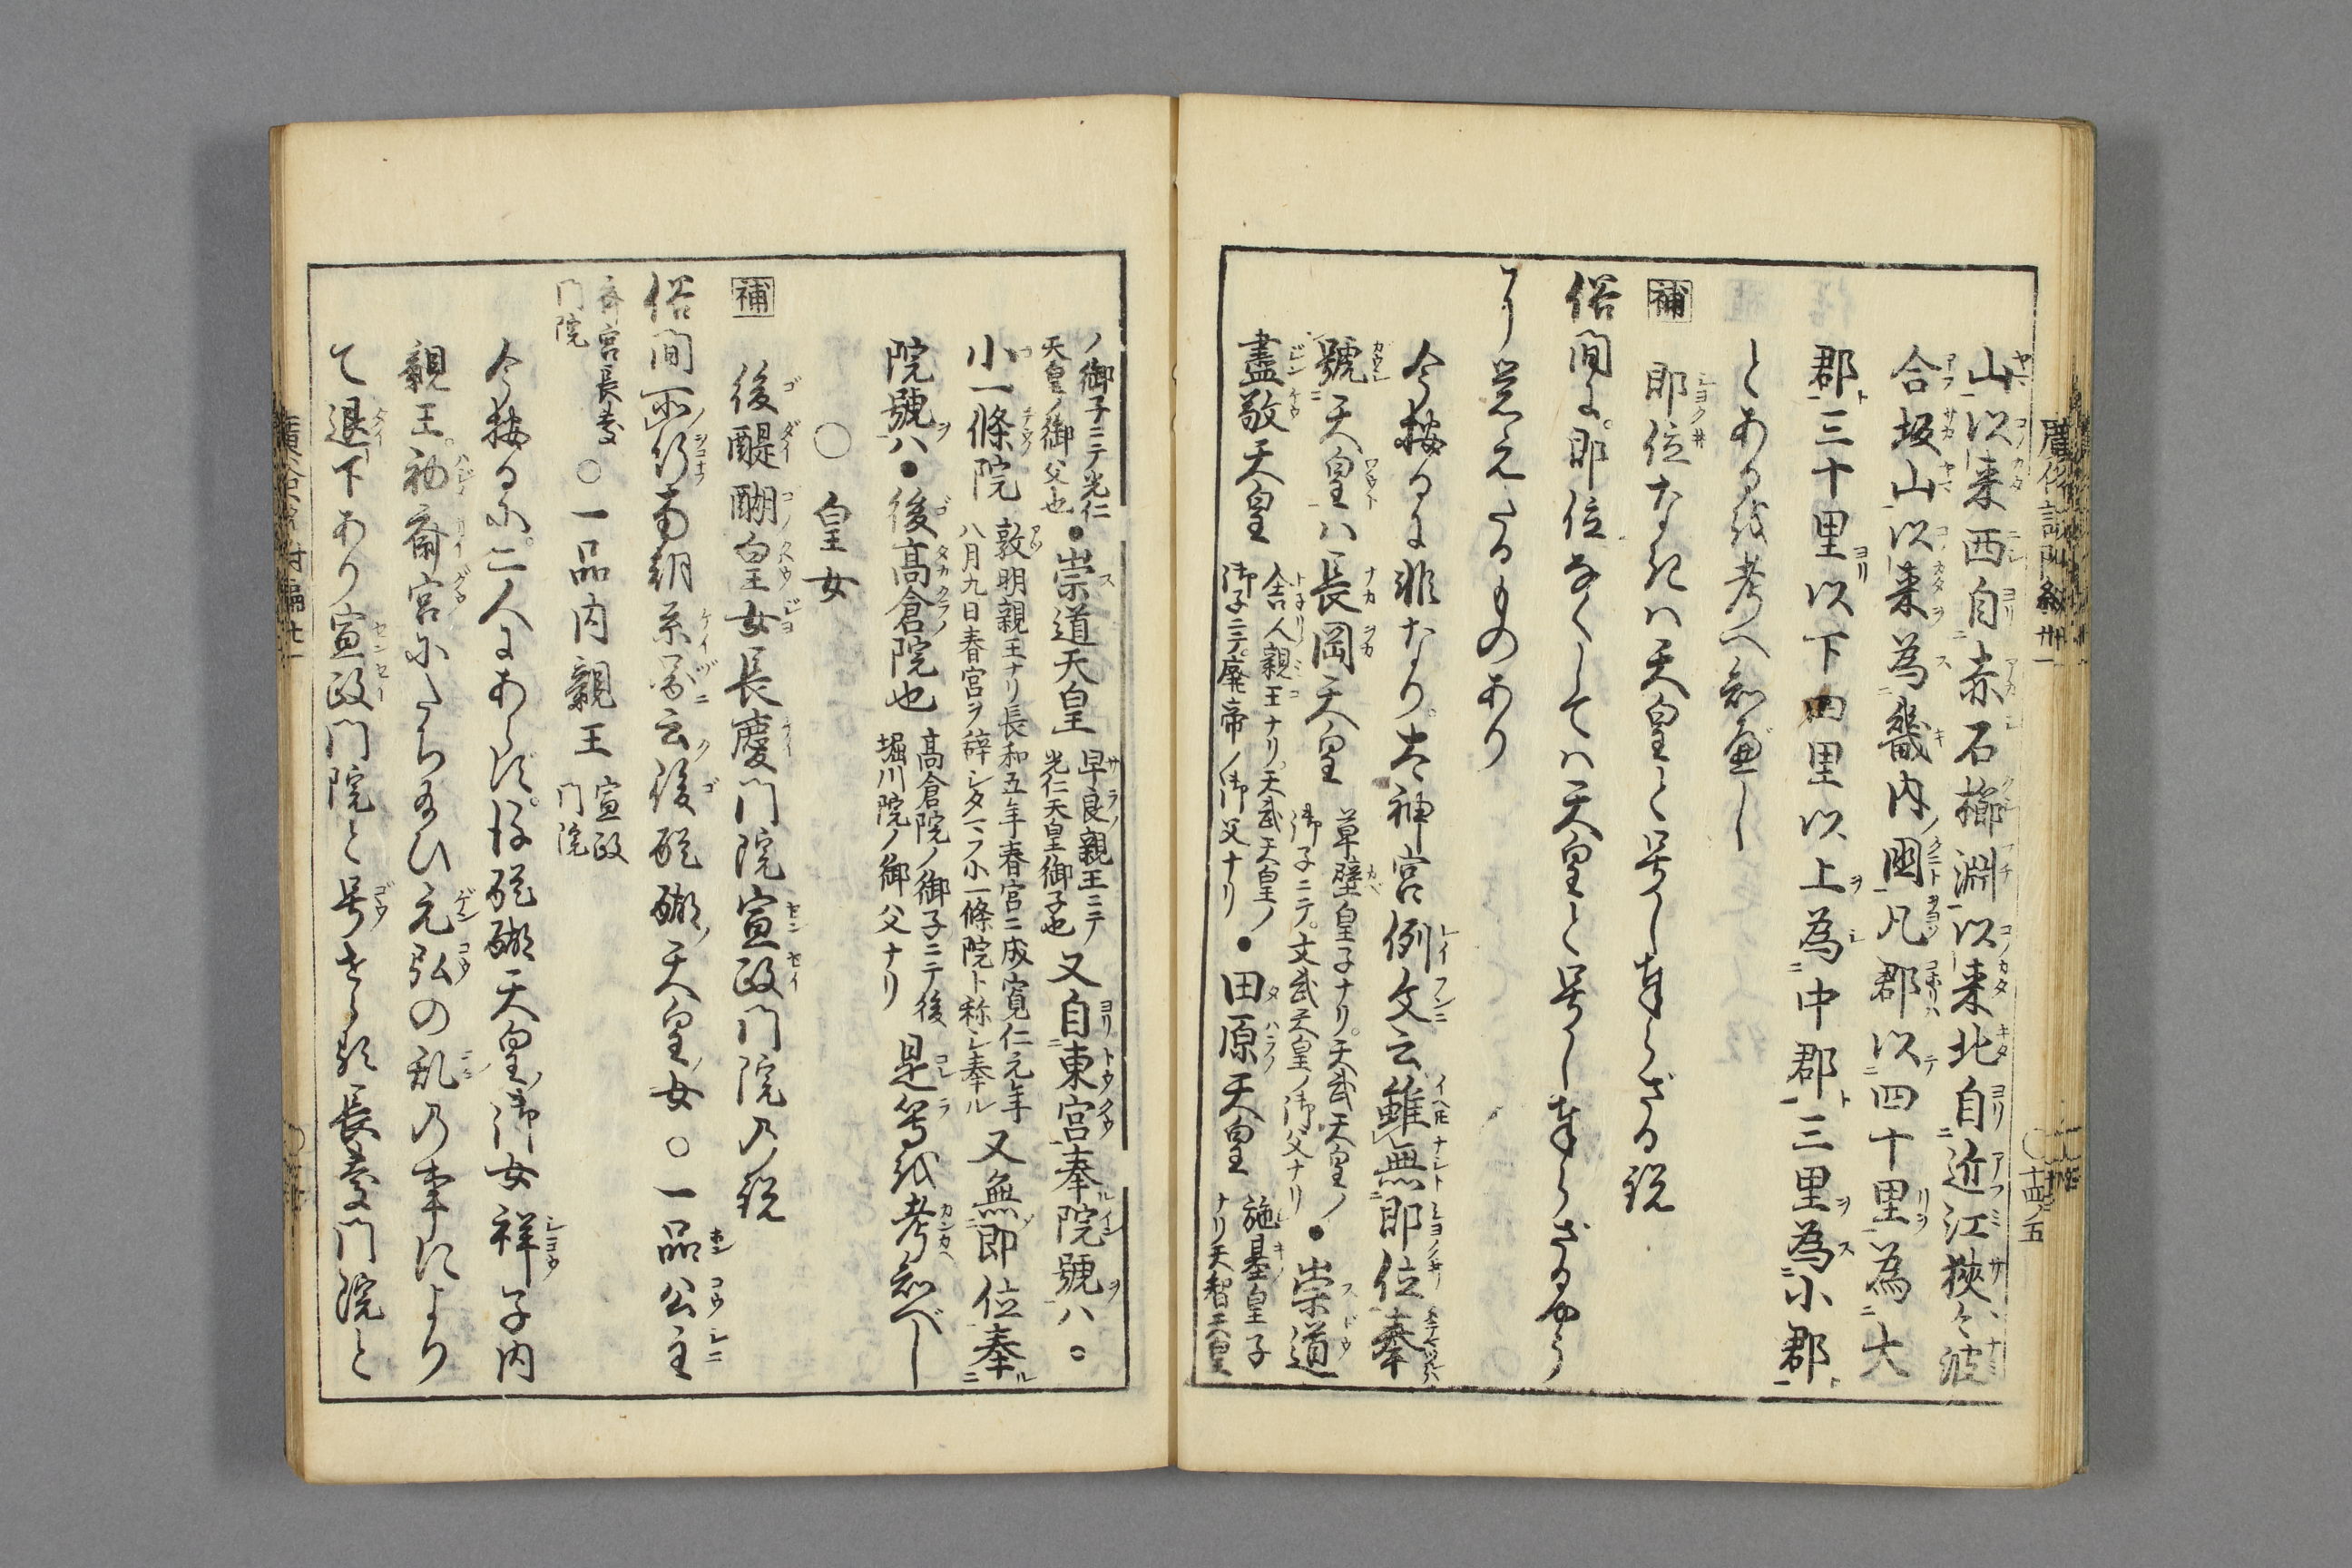 山以来西自赤石櫛淵以来北自近江狹々波
合坂山以来為畿内國凡郡以四十里為大
郡三十里以下四里以上為中郡三里為小郡
とあるを考へ知べし
補 即位なきは天皇と号し奉らざる説
俗間に即位なくしては天皇と号し奉らざるやう
に覚えたるものあり
今按るに非なり太神宮例文云雖無即位奉
號天皇ハ長岡天皇 草壁皇子ナリ天武天皇ノ御子ニテ文武天皇ノ御父ナリ ●崇道
盡敬天皇 舎人親王ナリ天武天皇ノ御子ニテ廃帝ノ御父ナリ ●田原天皇 施基皇子ナリ天智天皇
ノ御子ニテ光仁天皇ノ御父也 ●崇道天皇 早良親王ニテ光仁天皇御子也 又自東宮奉院號ハ○
小一條院 敦明親王ナリ長和五年春宮ニ成寛仁元年八月九日春宮ヲ辞シタマフ小一條院ト称シ奉ル 又無即位奉
院號ハ●後髙倉院也 髙倉院ノ御子ニテ後堀川院ノ御父ナリ 是等を考知べし
○皇女
補 後醍醐皇女長慶門院宣政門院の説
俗間所行南朝系図云後醍醐天皇女○一品公主
斎宮長慶門院 ○一品内親王 宣政門院
今按るに二人にあらず後醍醐天皇御女祥子内
親王初斎宮にたち給ひ元弘の乱の事により
て退下あり宣政門院と号せらる長慶門院と